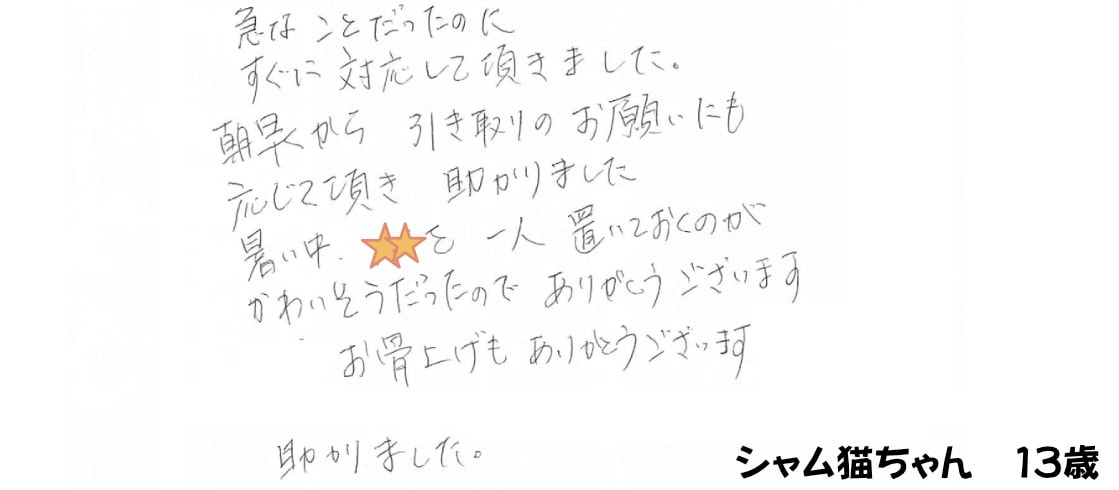 急なことだったのに
すぐに対応して頂きました。
朝早から 引き取りのお願いにも
応じて頂き 助かりました
暑い中、を 一人 置いておくのが
かわいそうだったので ありがとうございます
お骨上げも ありがとうございます
助かりました。
シャム猫ちゃん 13歳